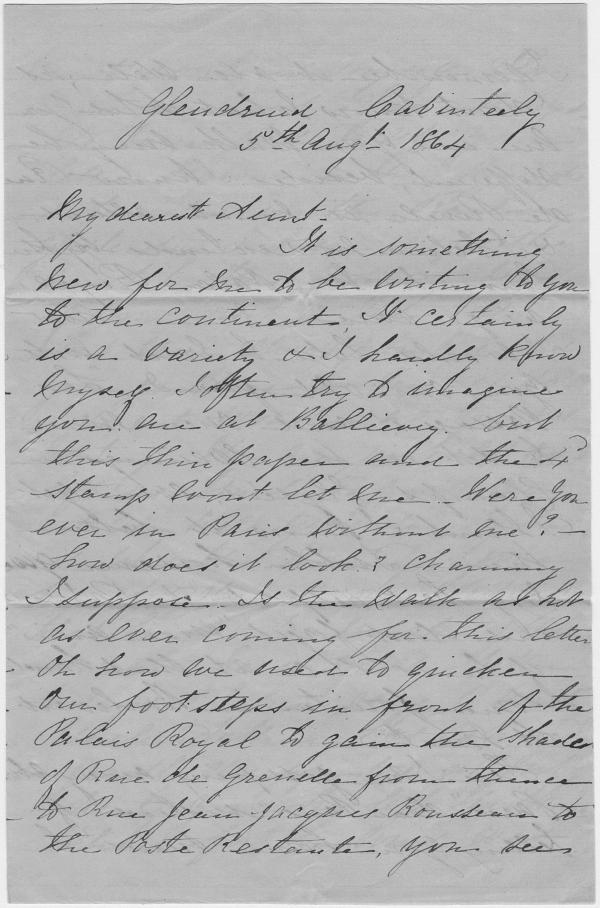 Glendruid Cabinteely
5th Augt 1864
My dearest Aunt-
It is something
new for me to be writing to you
to the continent, It certainly
is a variety & I hardly know
myself. I often try to imagine
you are at Ballievey. but
this thin paper and the 4d
stamp wont let me - Were you
ever in Paris without me? -
how does it look? Charming
I suppose. Is the walk as hot
as ever coming for this letter
Oh how we used to quicken
our footsteps in front of the
Palais Royal to gain the shades
of Rue de Grenelle from thence
to Rue Jean-Jacques Rousseau to
the Poste Restante, you see